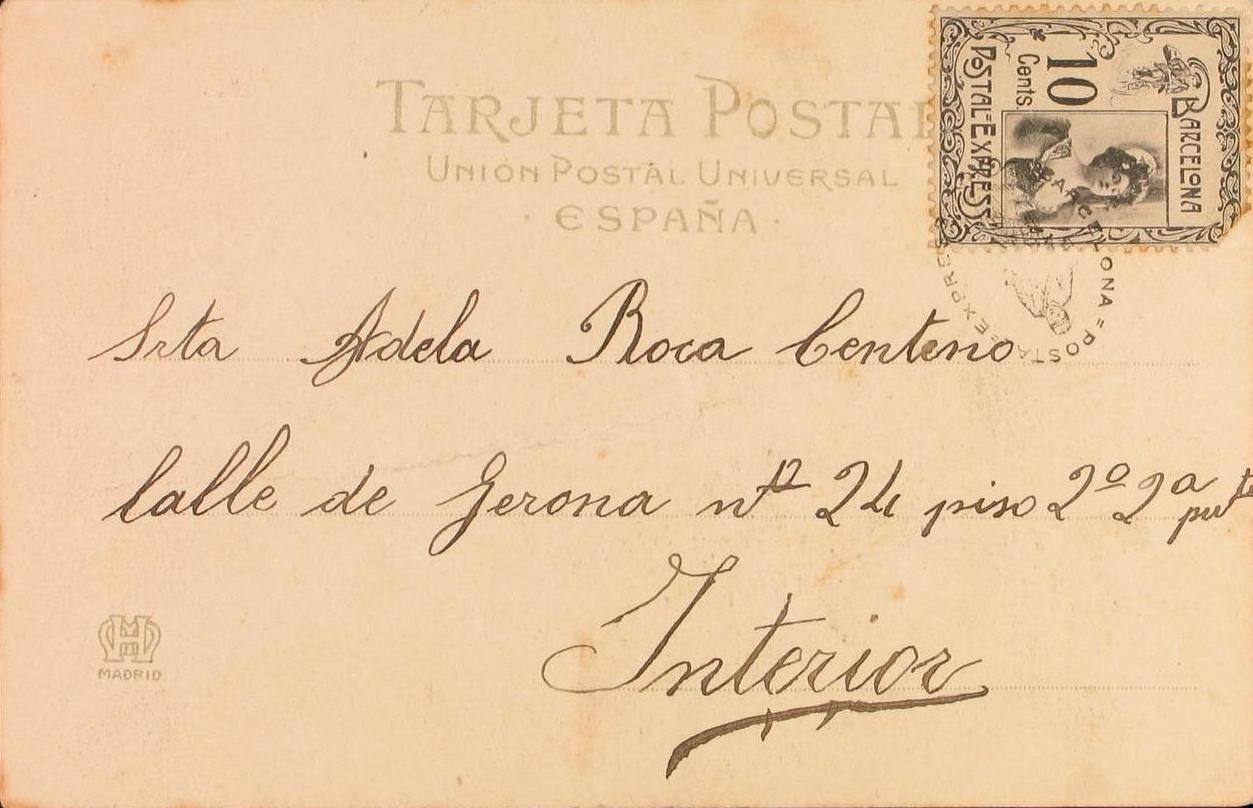 TARJETA POSTAL
UNIÓN POSTAL UNIVERSAL
· ESPAÑA ·
BARCELONA
10
Cents.
POSTAL-EXPRESS
BARCELONA = POSTAL-EXPRES
Srta Adela Roca Centeno
Calle de Gerona nº 24 piso 2º 2ª puta
Interior
HM
MADRID